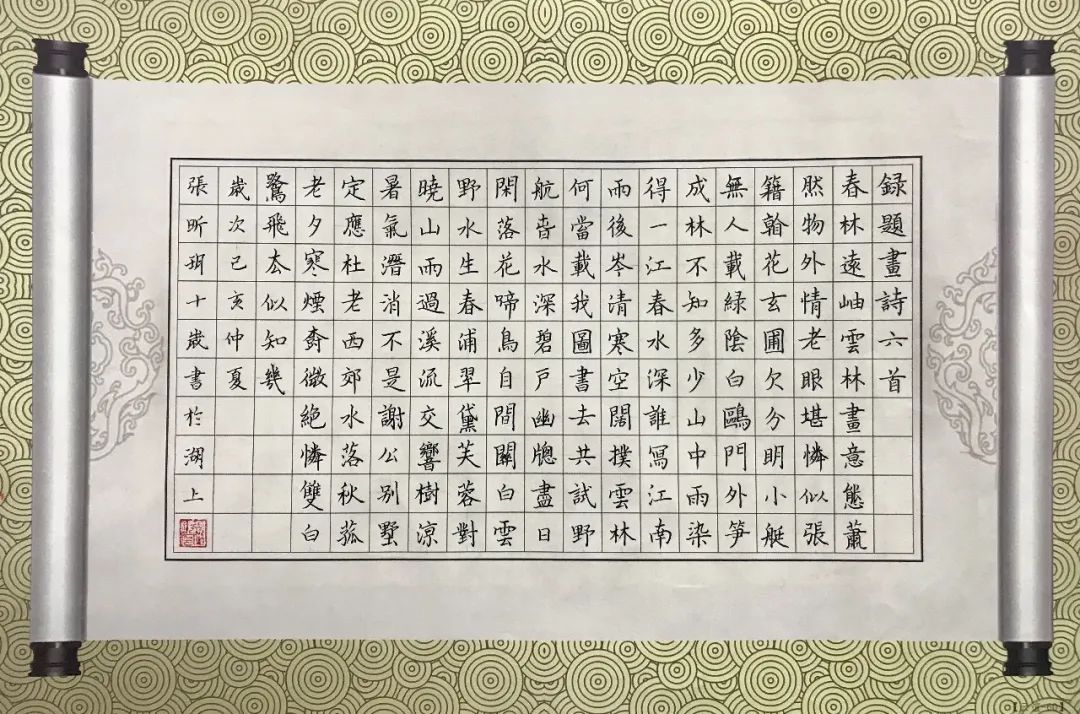 録題畫詩六首
春林遠岫雲林畫意態蕭
然物外情老眼堪憐似張
籍翰花玄圃欠分明小艇
無人載緑陰白鷗門外笋
成林不知多少山中雨染
得一江春水深誰寫江南
雨後岑清寒空闊撲雲林
何當載我圖書去共試野
航音水深碧戶幽牕盡日
閑落花啼鳥自間關白雲
野水生春浦翠黛芙蓉對
曉山雨過溪流交響樹涼
暑氣潛消不是謝公別墅
定應杜老西郊水落秋菰
老夕寒煙裔微絕憐雙白
鷺飛去似知幾
歲次己亥仲夏
張昕玥十歲書於湖上